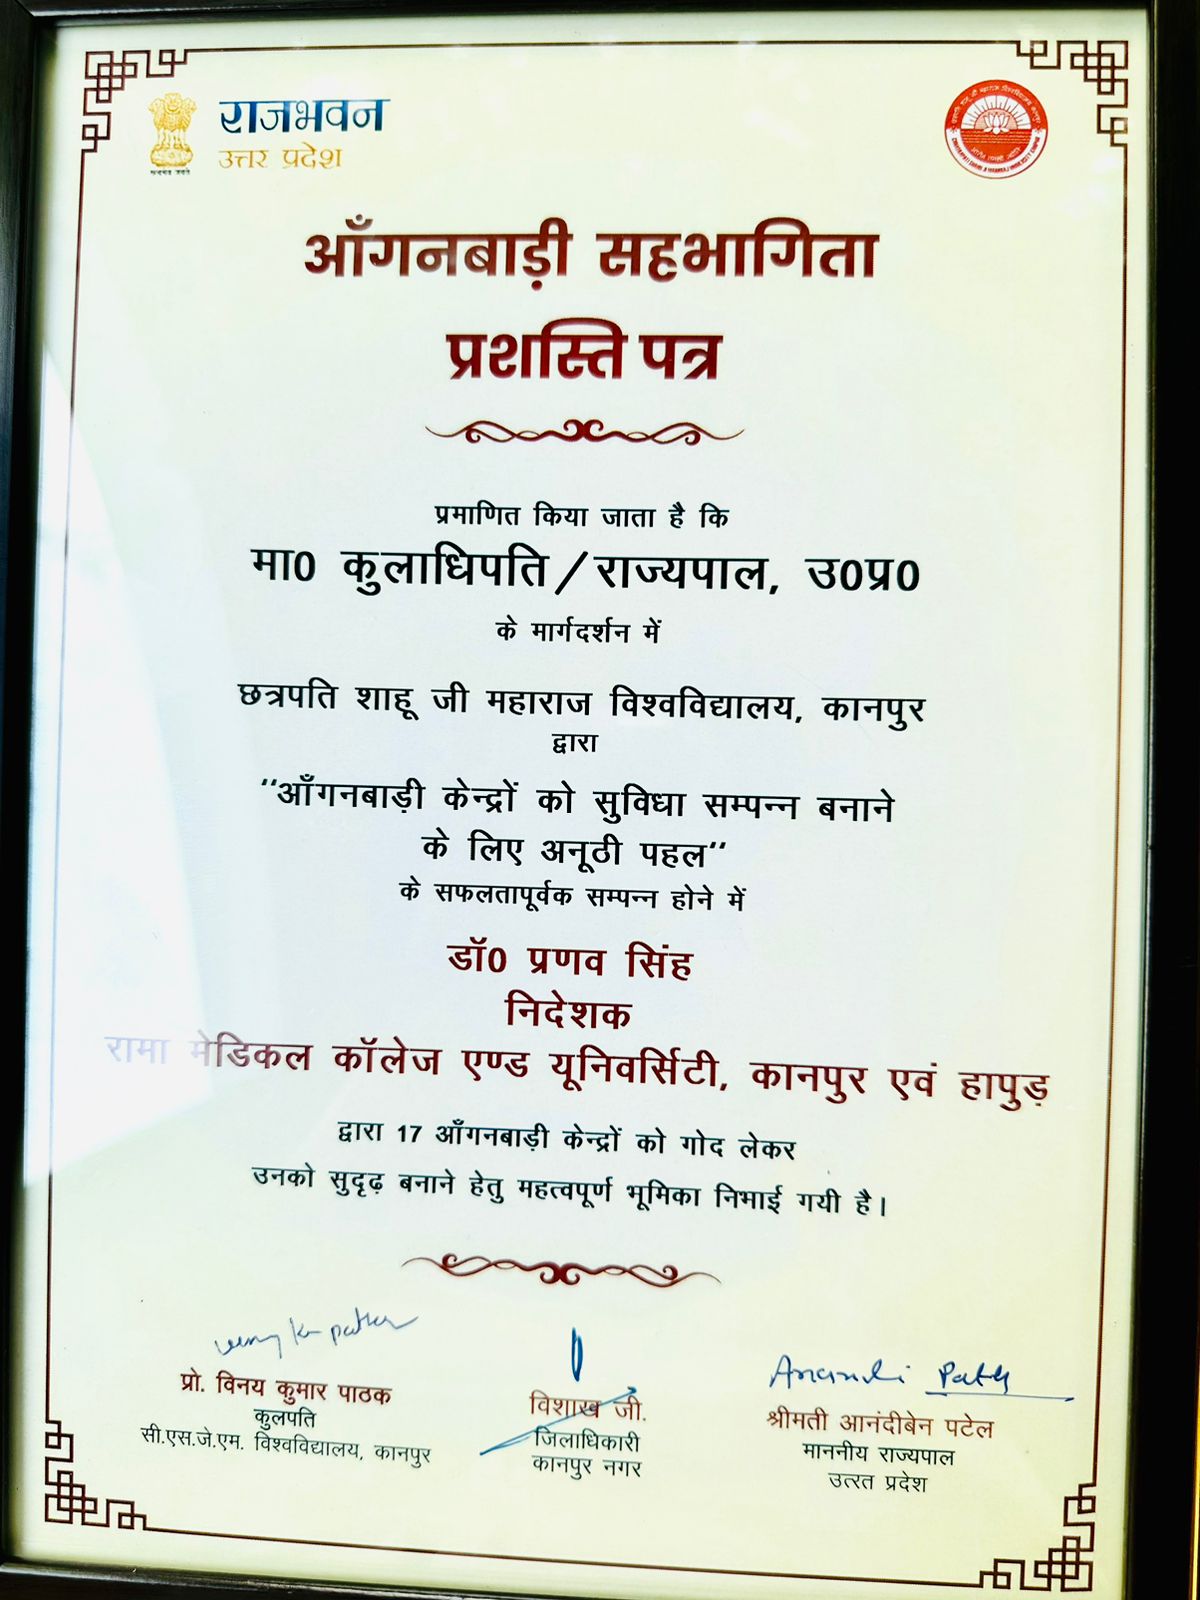 राजभवन
उत्तर प्रदेश
आँगनबाड़ी सहभागिता
प्रशस्ति पत्र
प्रमाणित किया जाता है कि
मा0 कुलाधिपति/राज्यपाल, उ0प्र0
के मार्गदर्शन में
छत्रपति शाहू जी महाराज विश्वविद्यालय, कानपुर
द्वारा
"आँगनबाड़ी केन्द्रों को सुविधा सम्पन्न बनाने
के लिए अनूठी पहल"
के सफलतापूर्वक सम्पन्न होने में
डॉ0 प्रणव सिंह
निदेशक
रामा मेडिकल कॉलेज एण्ड यूनिवर्सिटी, कानपुर एवं हापुड़
द्वारा 17 आँगनबाड़ी केन्द्रों को गोद लेकर
उनको सुदृढ़ बनाने हेतु महत्वपूर्ण भूमिका निभाई गयी है।
प्रो. विनय कुमार पाठक
कुलपति
सी.एस.जे.एम. विश्वविद्यालय, कानपुर
विशाख जी.
जिलाधिकारी
कानपुर नगर
श्रीमती आनंदीबेन पटेल
माननीय राज्यपाल
उत्रत प्रदेश